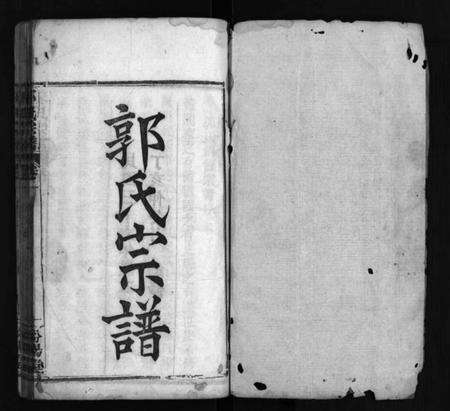 郭氏宗譜